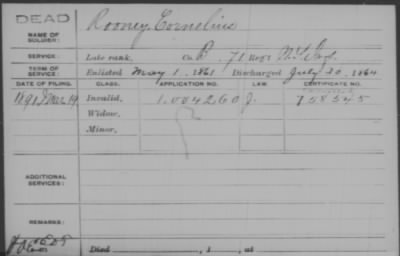 DEAD
NAME OF SOLDIER: Rooney, Cornelius
SERVICE: Late rank, Co. B, 71 Reg't N.Y. Inf.
TERM OF SERVICE: Enlisted May 1, 1861 Discharged July 30, 1864
DATE OF FILING. CLASS. APPLICATION NO. LAW. CERTIFICATE NO.
Mar 19 Invalid, 1.004260 J. 758545
Widow,
Minor,
ADDITIONAL SERVICES:
REMARKS:
Died , 1 , at